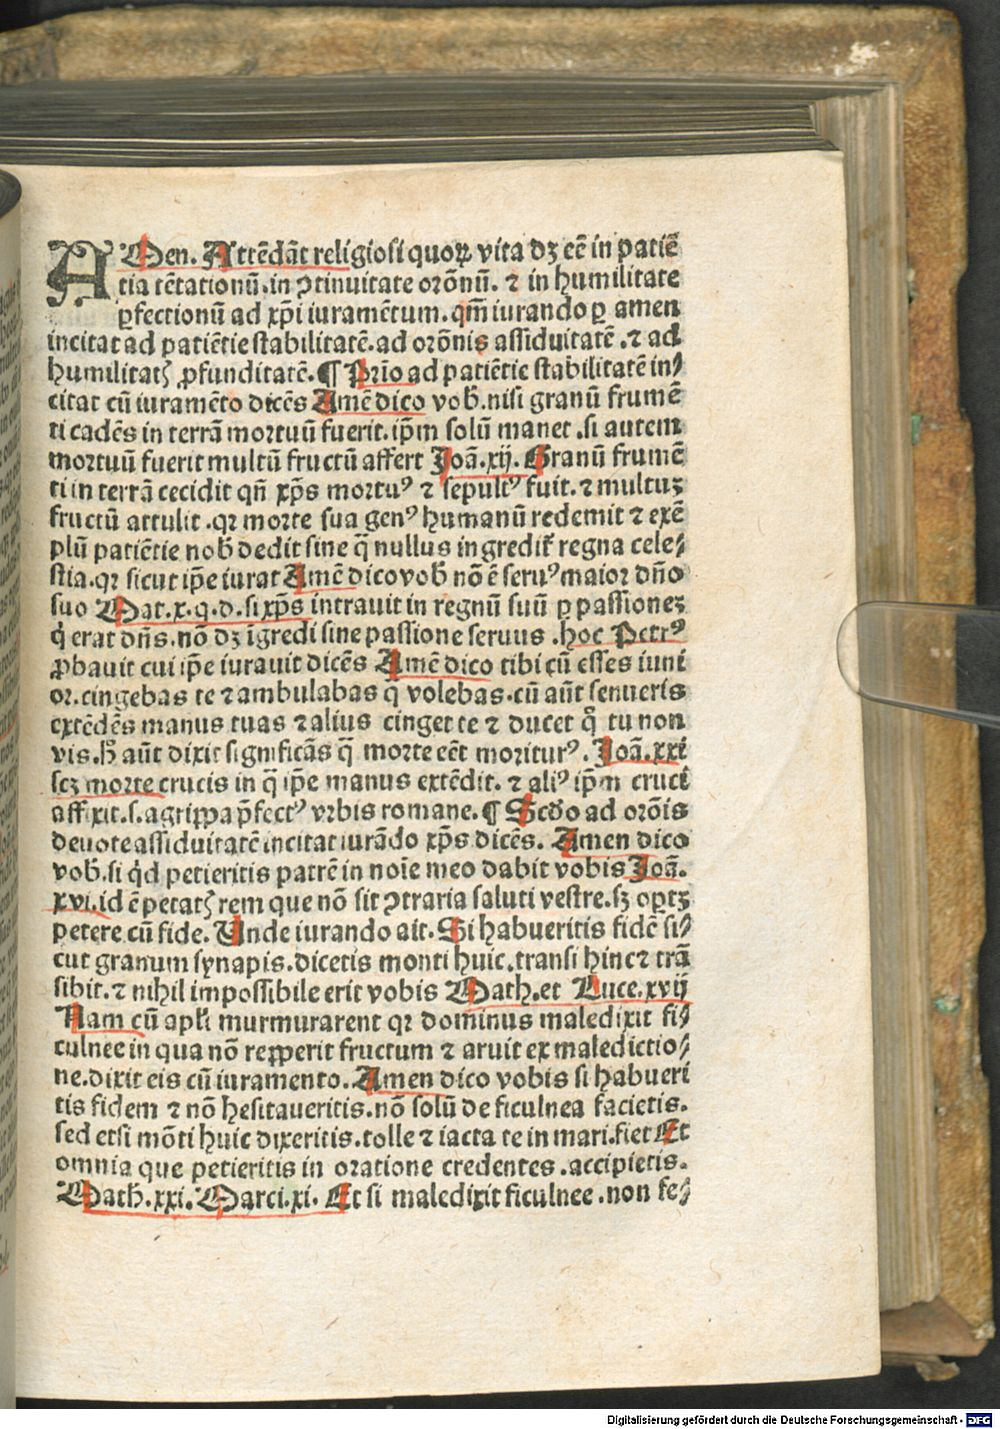 AMen. Attēdāt religiosi quoꝝ vita dꝫ eē in patiē
tia tētationū.in ꝯtinuitate orōnū. ⁊ in humilitate
ꝑfectionū ad xp̄i iuramētum. qm̄ iurando ꝑ amen
incitat ad patiētie stabilitatē.ad orōnis assiduitatē .⁊ ad
humilitatꝭ ꝓfunditatē.¶ Prīo ad patiētie stabilitatē in⸗
citat cū iuramēto dicēs Amē dico vob̄.nisi granū frumē
ti cadēs in terrā mortuū fuerit.ip̄m solū manet .si autem
mortuū fuerit multū fructū affert Joā.xij. Granū frumē
ti in terrā cecidit qn̄ xp̄s mortuꝰ ⁊ sepultꝰ fuit.⁊ multuꝫ
fructū attulit .qꝛ morte sua genꝰ humanū redemit ⁊ exē
plū patiētie nob̄ dedit sine q̄ nullus ingredit̄ regna cele⸗
stia.qꝛ sicut ip̄e iurat Amē dico vob̄ nō ē seruꝰ maior dn̄o
suo Mat.x.q.d.si xp̄s intrauit in regnū suū ꝑ passioneꝫ
q̇ erat dn̄s.nō dꝫ īgredi sine passione seruus .hoc Petrꝰ
ꝓbauit cui ip̄e iurauit dicēs Amē dico tibi cū esses iuni
or.cingebas te ⁊ ambulabas q̇ volebas.cū aūt senueris
extēdēs manus tuas ⁊ alius cinget te ⁊ ducet q̄ tu non
vis.h̄ aūt dixit significās q̄ morte eēt morituꝰ. Joā.xxi
scꝫ morte crucis in q̄ ip̄e manus extēdit. ⁊ aliꝰ ip̄m cruci
affixit.s.agrippa p̄fectꝰ vrbis romane.¶ Scd̄o ad orōis
deuote assiduitatē incitat iurādo xp̄s dicēs. Amen dico
vob̄.si q̇d petieritis patrē in noīe meo dabit vobis Joā.
xvi.id ē petatꝭ rem que nō sit ꝯtraria saluti vestre.sꝫ optꝫ
petere cū fide. Unde iurando ait. Si habueritis fidē si⸗
cut granum synapis.dicetis monti huic.transi hinc ⁊ trā
sibit.⁊ nihil impossibile erit vobis Math.et Luce.xvij
Nam cū apl̄i murmurarent qꝛ dominus maledixit fi⸗
culnee in qua nō repperit fructum ⁊ aruit ex maledictio⸗
ne.dixit eis cū iuramento. Amen dico vobis si habueri
tis fidem ⁊ nō hesitaueritis.nō solū de ficulnea facietis.
sed etsi mōti huic dixeritis.tolle ⁊ iacta te in mari.fiet Et
omnia que petieritis in oratione credentes .accipietis.
Math.xxi. Marci.xi. Et si maledixit ficulnee .non fe⸗
Digitalisierung gefördert durch die Deutsche Forschungsgemeinschaft - DFG